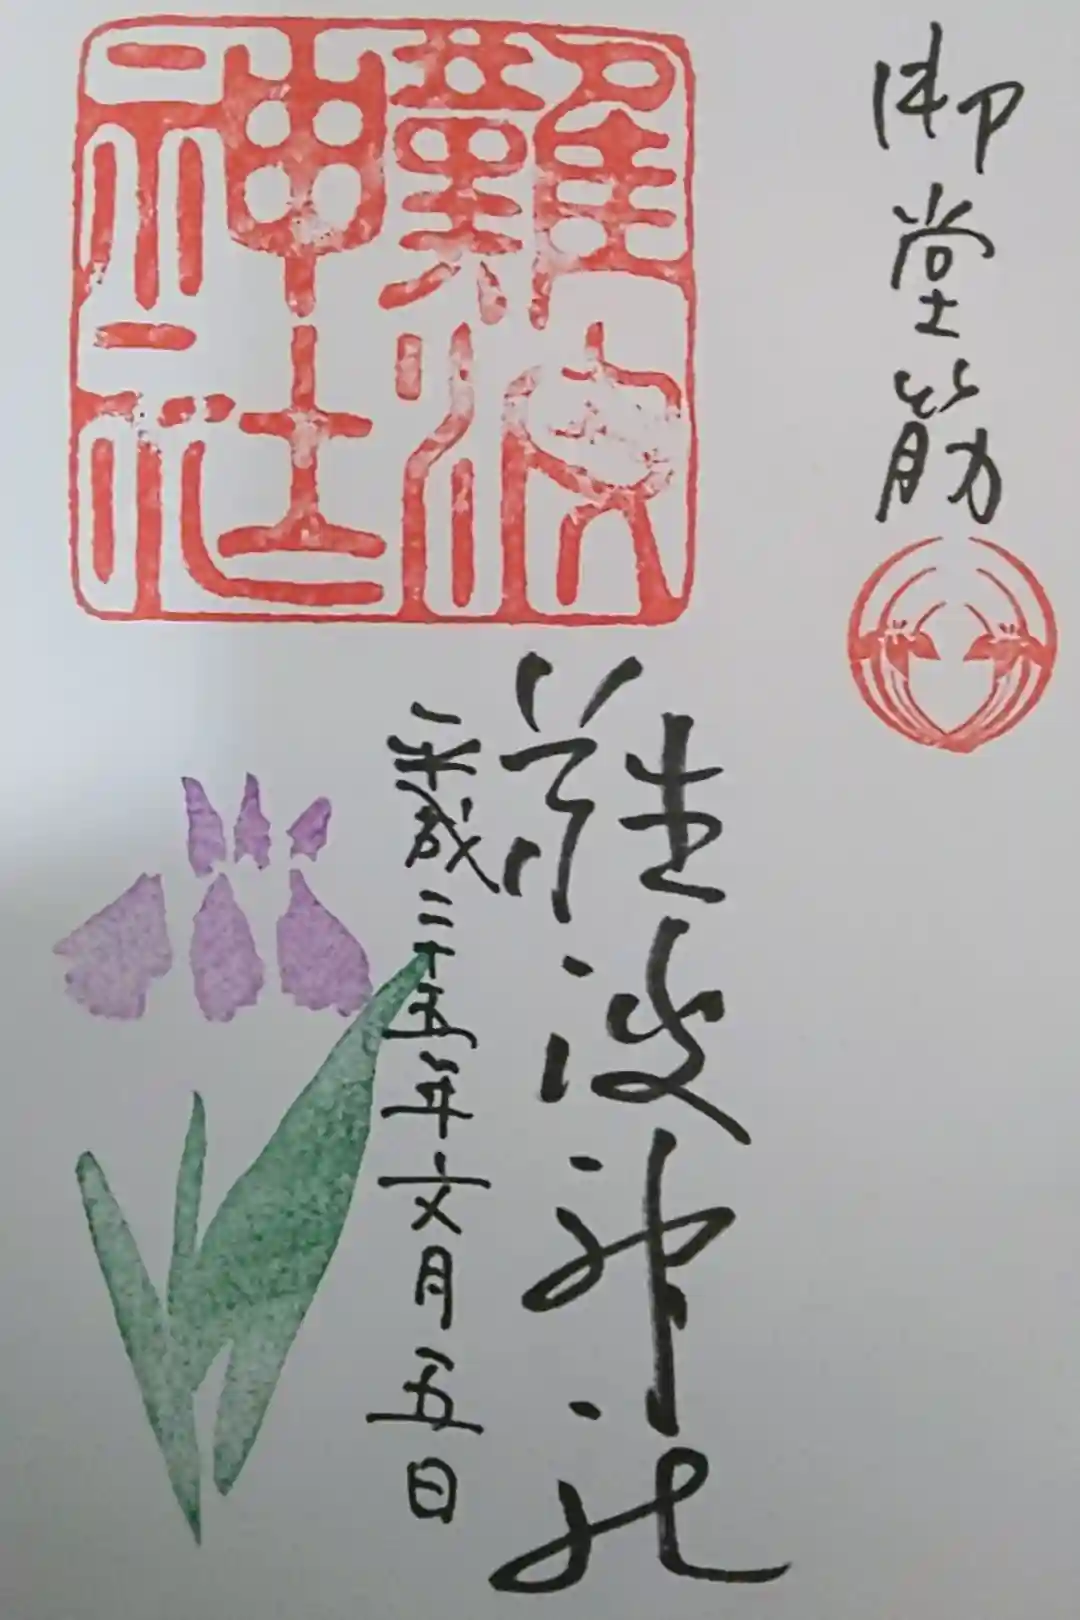 御堂筋
難波神社
難波神社
平成二十五年文月五日